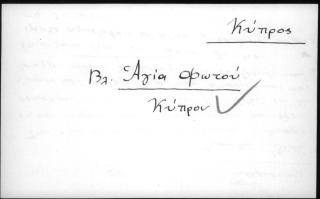 Κύπρος
Βλ. Ἁγία Φωτού
Κύπρου